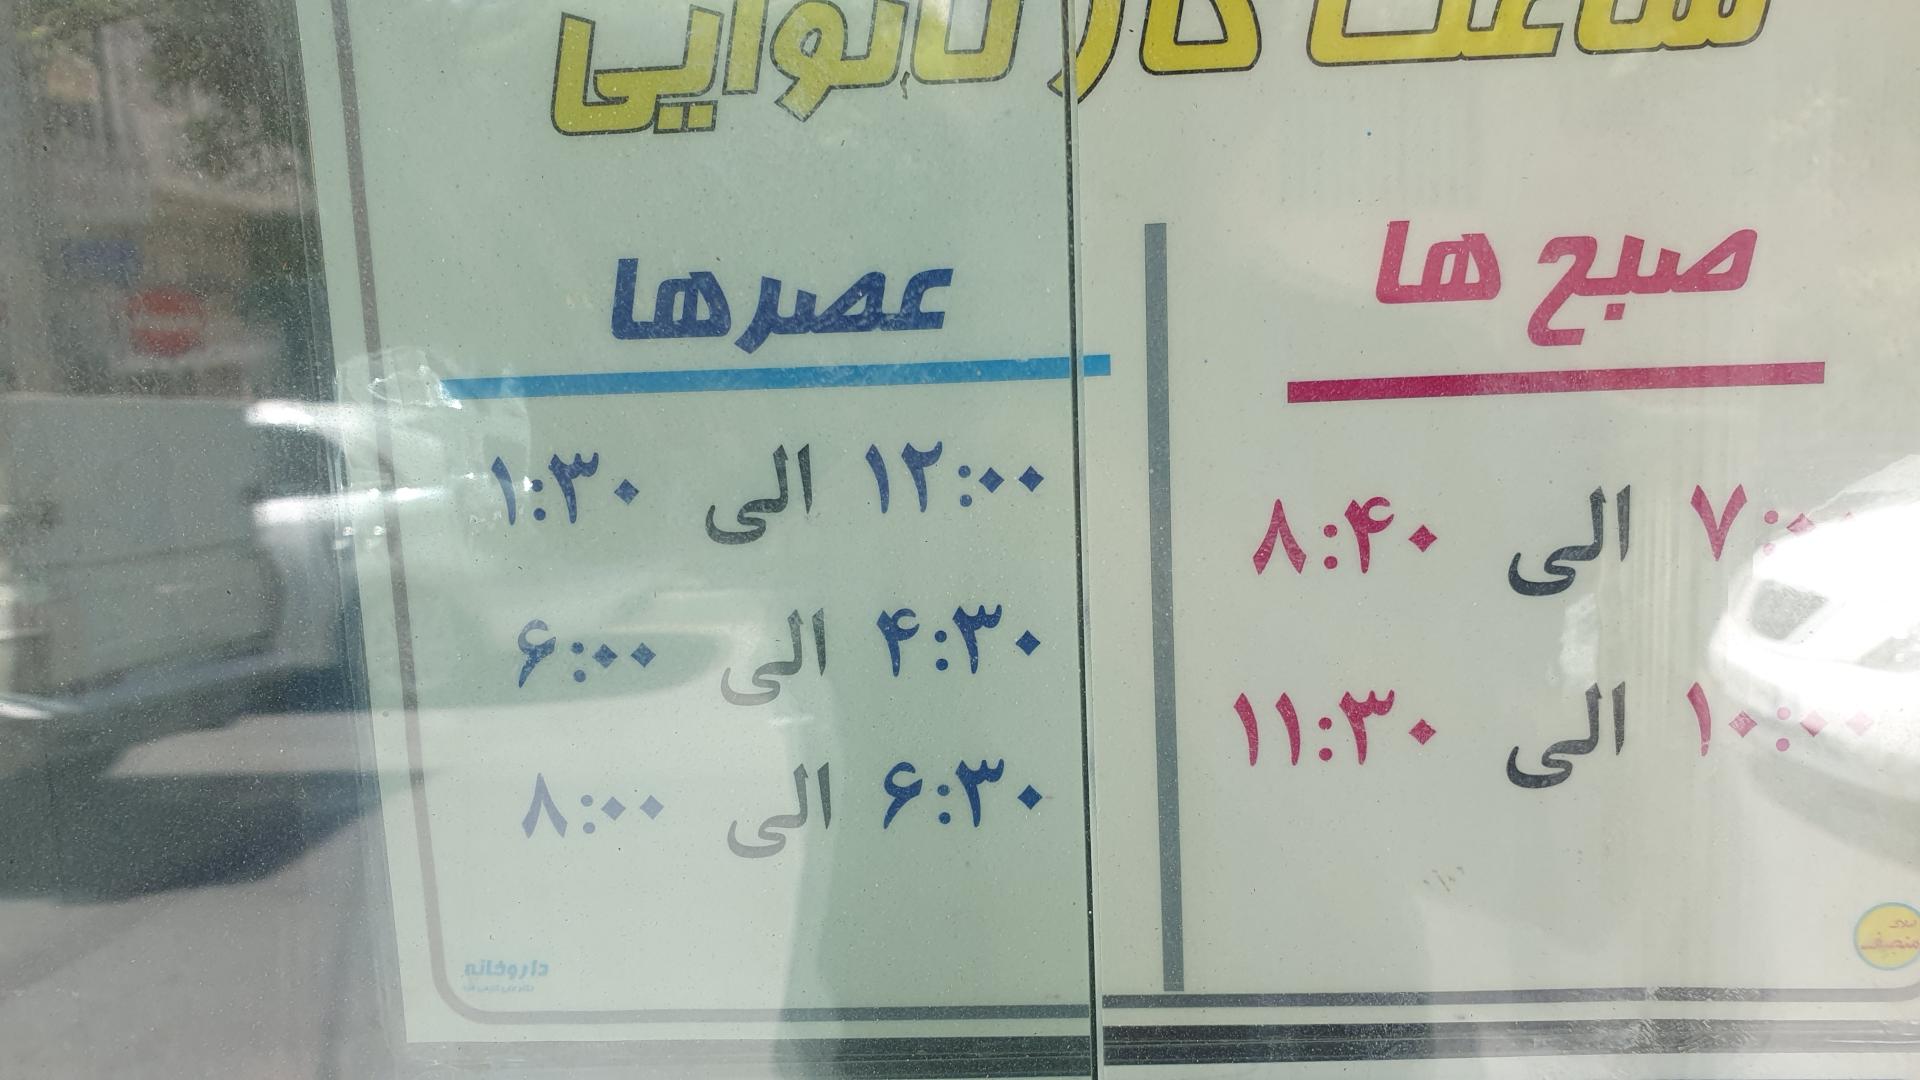 ساعت کار نانوایی
صبح ها
۷:۰۰ الی ۸:۴۰
۱۰:۰۰ الی ۱۱:۳۰
عصرها
۱۲:۰۰ الی ۱:۳۰
۴:۳۰ الی ۶:۰۰
۶:۳۰ الی ۸:۰۰
داروخانه